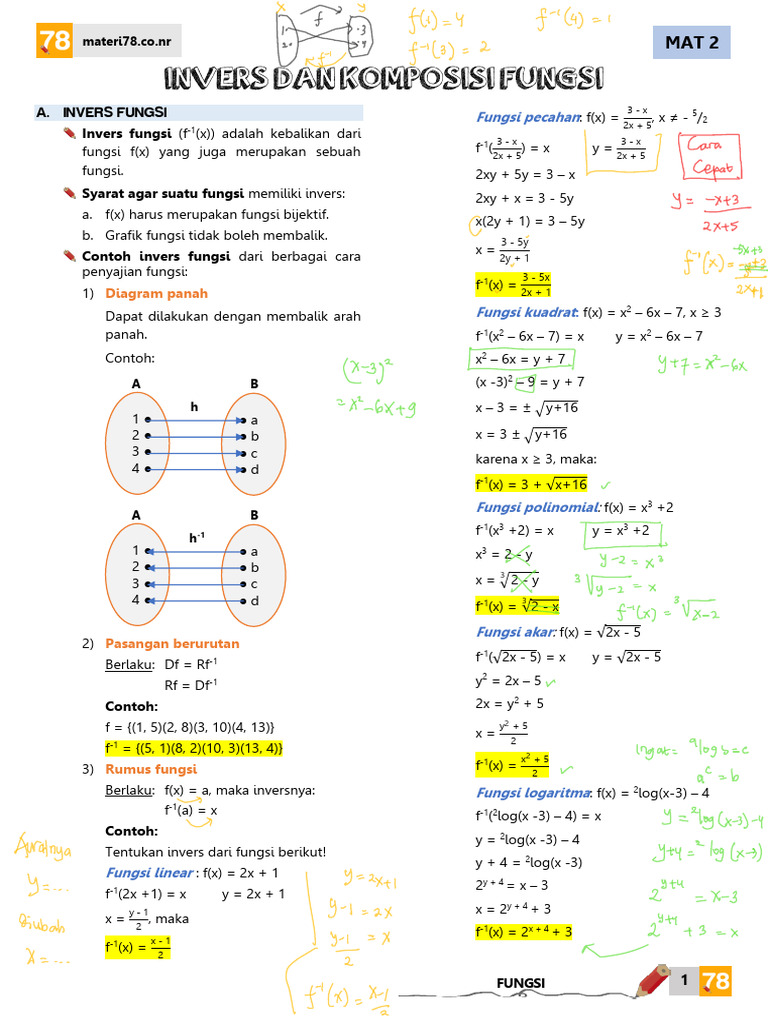 78 materi78.co.nr
x y
f
1 3
2 4
f⁻¹
f(1) = 4 f⁻¹(4) = 1
f⁻¹(3) = 2
MAT 2
INVERS DAN KOMPOSISI FUNGSI
A. INVERS FUNGSI
Invers fungsi (f⁻¹(x)) adalah kebalikan dari
fungsi f(x) yang juga merupakan sebuah
fungsi.
Syarat agar suatu fungsi memiliki invers:
a. f(x) harus merupakan fungsi bijektif.
b. Grafik fungsi tidak boleh membalik.
Contoh invers fungsi dari berbagai cara
penyajian fungsi:
1) Diagram panah
Dapat dilakukan dengan membalik arah
panah.
Contoh:
A B
h
1 a
2 b
3 c
4 d
A B
h⁻¹
1 a
2 b
3 c
4 d
2) Pasangan berurutan
Berlaku: Df = Rf⁻¹
Rf = Df⁻¹
Contoh:
f = {(1, 5)(2, 8)(3, 10)(4, 13)}
f⁻¹ = {(5, 1)(8, 2)(10, 3)(13, 4)}
3) Rumus fungsi
Berlaku: f(x) = a, maka inversnya:
f⁻¹(a) = x
Contoh:
Tentukan invers dari fungsi berikut!
Fungsi linear : f(x) = 2x + 1
f⁻¹(2x +1) = x y = 2x + 1
x = (y - 1)/2, maka
f⁻¹(x) = (x - 1)/2
y = ...
x = ...
y = 2x+1
y-1 = 2x
(y-1)/2 = x
f⁻¹(x) = (x-1)/2
Fungsi pecahan: f(x) = (3 - x)/(2x + 5), x ≠ - ⁵/₂
f⁻¹((3 - x)/(2x + 5)) = x y = (3 - x)/(2x + 5)
2xy + 5y = 3 – x
2xy + x = 3 - 5y
x(2y + 1) = 3 – 5y
x = (3 - 5y)/(2y + 1)
f⁻¹(x) = (3 - 5x)/(2x + 1)
Cara
Cepat
y = (-x+3)/(2x+5)
-5x+3
f⁻¹(x) =
2x+1
Fungsi kuadrat: f(x) = x² – 6x – 7, x ≥ 3
f⁻¹(x² – 6x – 7) = x y = x² – 6x – 7
x² – 6x = y + 7
y+7 = x²-6x
(x -3)² – 9 = y + 7
(x-3)²
= x²-6x+9
x – 3 = ± √(y+16)
x = 3 ± √(y+16)
karena x ≥ 3, maka:
f⁻¹(x) = 3 + √(x+16) ✓
Fungsi polinomial: f(x) = x³ +2
f⁻¹(x³ +2) = x y = x³ +2
x³ = 2 – y
y-2 = x³
x = ³√(2 - y)
³√(y-2) = x
f⁻¹(x) = ³√(2 - x)
f⁻¹(x) = ³√(x-2)
Fungsi akar: f(x) = √(2x - 5)
f⁻¹(√(2x - 5)) = x y = √(2x - 5)
y² = 2x – 5 ✓
2x = y² + 5
x = (y² + 5)/2
f⁻¹(x) = (x² + 5)/2 ✓
ingat = ᵃlog b = c
aᶜ = b
Fungsi logaritma: f(x) = ²log(x-3) – 4
f⁻¹(²log(x -3) – 4) = x
y = ²log(x-3)-4
y = ²log(x -3) – 4
y + 4 = ²log(x -3)
y+4 = ²log(x-3)
2ʸ ⁺ ⁴ = x – 3
2ʸ⁺⁴ = x-3
x = 2ʸ ⁺ ⁴ + 3
f⁻¹(x) = 2ˣ ⁺ ⁴ + 3
2ʸ⁺⁴ + 3 = x
FUNGSI 1 78